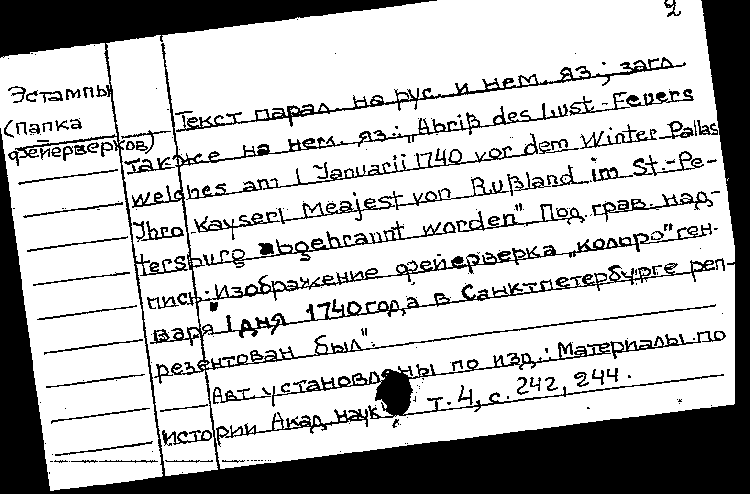 2
Эстампы
(папка
фейерверков)
Текст парал. на рус. и нем. яз.; загл.
также на нем. яз.: „Abriß des Lust-Feuers
welches am 1 Januarii 1740 vor dem Winter Pallas
Ihro Kayserl Meajest von Rußland im St.-Pe-
tersburg abgebrannt worden". Под грав. над-
пись: „Изображение фейерверка „колоро" ген-
варя 1 дня 1740 года в Санктпетербурге реп-
резентован был".
Авт. установлены по изд.: Материалы по
истории Акад. наук т. 4, с. 242, 244.